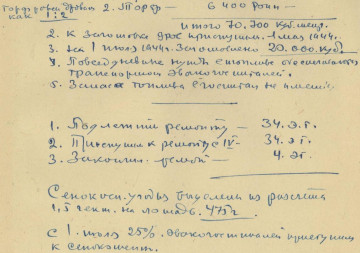 2. Торф — 6 400 тонн —
как 1:2
итого 70.700 куб. метр.
2. К заготовке дров приступили 1 мая 1944 г.
3. на 1 июля 1944 г. Заготовлено 20.000 куб.
4. Повседневные нужды в топливе обеспечивались транспортом эвакогоспиталей.
5. Запасов топлива госпитали не имели.
1. Подлежит ремонту — 34. э.г.
2. Приступили к ремонту — 34. э.г.
3. Закончили ремонт — 4. эг.
Сенокосн. угодья выделены из расчета
1,5 гект. на лошадь. 475 г.
С 1. июля 25% эвакогоспиталей приступили
к сенокошению.